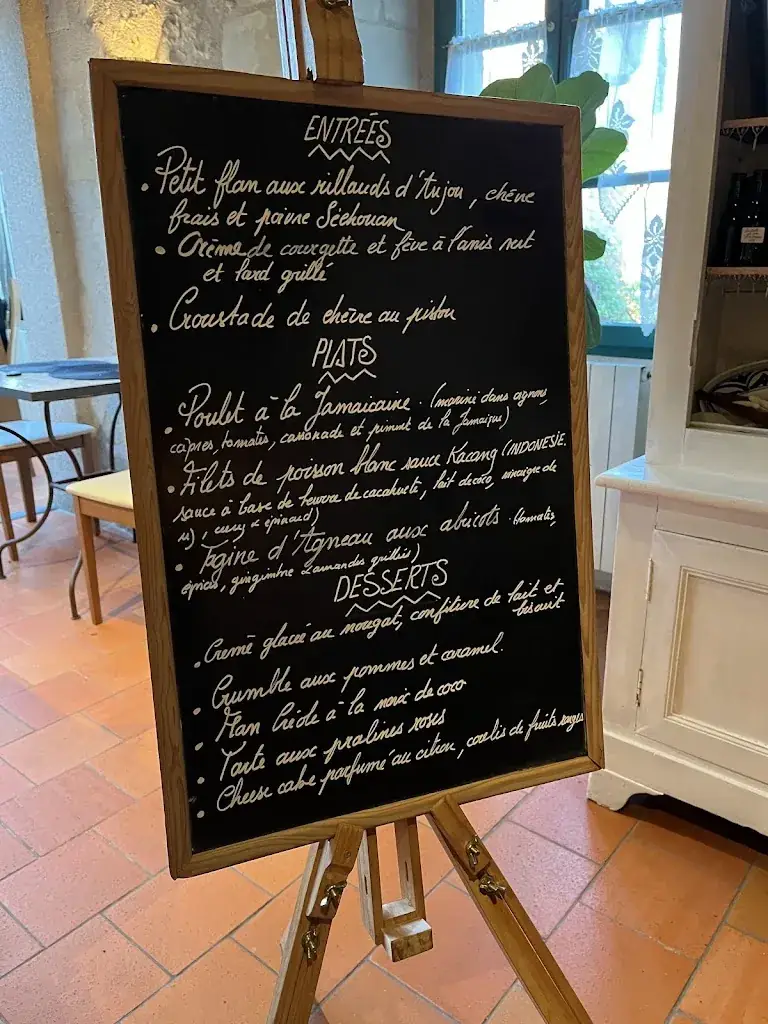 ENTRÉES
. Petit flan aux rillauds d'Anjou, chèvre
frais et poivre Séchouan
• Crème de courgette et fève à l'anis vert
et lard grillé
. Croustade de chèvre au pistou
PLATS
. Poulet à la Jamaicaine. (mariné dans oignons,
câpres, tomates, cassonade et piment de la Jamaïque)
. Filets de poisson blanc sauce Kacang (INDONESIE.
sauce à base de beurre de cacahuète, lait de coco, vinaigre de
riz, curry & épinard)
• Tagine d'Agneau aux abricots (tomates,
épices, gingimbre & amandes grillées)
DESSERTS
. Crème glacée au nougat, confiture de lait et
biscuit
. Crumble aux pommes et caramel.
. Flan Créole à la noix de coco
. Tarte aux pralines roses
. Cheese cake parfumé au citron, coulis de fruits rouges